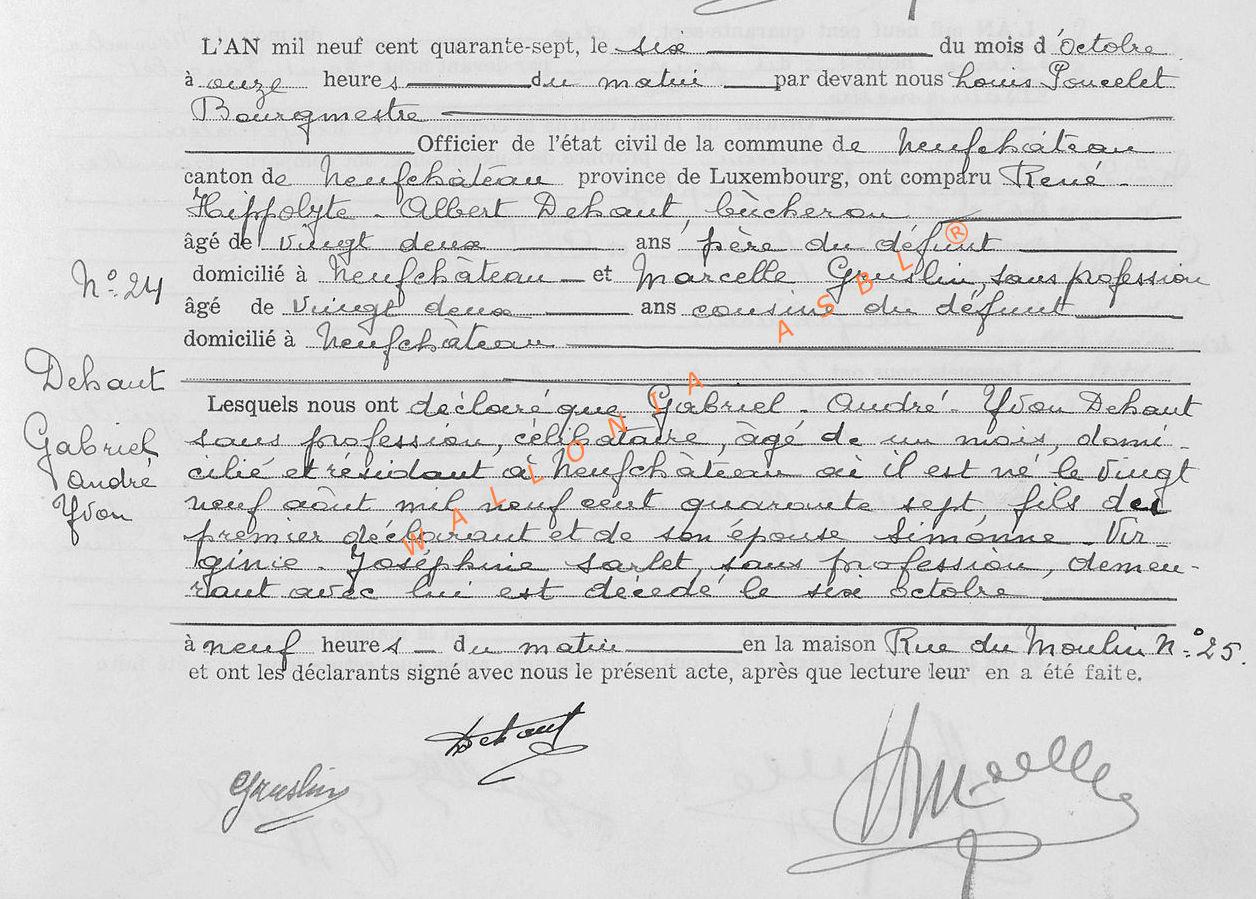 L'AN mil neuf cent quarante-sept, le six du mois d'Octobre
à onze heures du matin par devant nous Louis Poncelet
Bourgmestre
Officier de l'état civil de la commune de Neufchâteau
canton de Neufchâteau province de Luxembourg, ont comparu René-
Hippolyte-Albert Dehaut, bûcheron
âgé de vingt deux ans père du défunt
N° 24
domicilié à Neufchâteau et Marcelle Gruslin, sans profession
âgé de vingt deux ans cousine du défunt
domicilié à Neufchâteau
Dehaut
Gabriel
André
Yvon
Lesquels nous ont déclaré que Gabriel-André-Yvon Dehaut
sans profession, célibataire, âgé de un mois, domi-
cilié et résidant à Neufchâteau où il est né le vingt
neuf août mil neuf cent quarante sept fils du
premier déclarant et de son épouse Simonne-Vir-
ginie-Joséphine Sarlet, sans profession, demeu-
rant avec lui est décédé le six octobre
à neuf heures du matin en la maison Rue du Moulin N° 25.
et ont les déclarants signé avec nous le présent acte, après que lecture leur en a été faite.
Dehaut
Gruslin
WALLONIA ASBL ®